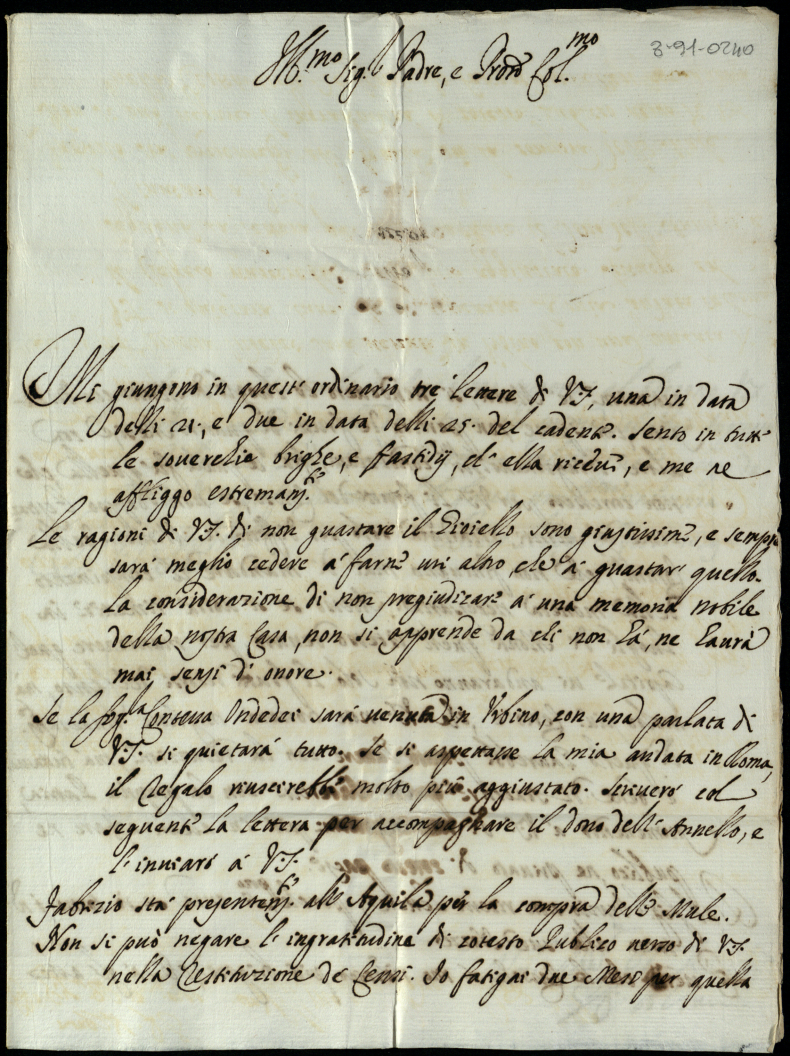 3-91-0240
Ill.mo Sig.r Padre, e Pron Col.mo
Mi giungono in quest' ordinario tre lettere di VS, una in data
delli 21., e due in data delli 25. del cadent.e Sento in tutte
le soverchie brighe, e fastidij, ch' ella riceve, e me ne
affliggo estremam.te
Le ragioni di VS. di non guastare il Gioiello sono giustissime, e sempre
sará meglio cedere á farne un altro, che á guastar quello.
La considerazione di non pregiudicare á una memoria nobile
della nostra Casa, non si apprende da chi non há, ne haurá
mai sensi d' onore.
Se la Sig.ra Contessa Ondedei sará venuta in Urbino, con una parlata di
VS. si quietará tutto. Se si aspettasse la mia andata in Roma,
il regalo riuscirebbe molto piú aggiustato. Scriveró col
seguente la lettera per accompagnare il dono dell' Annello, e
l' inviaró á VS.
Fabrizio stá presentem.te all' Aquila per la compra delle Mule.
Non si puó negare l' ingratitudine di cotesto Publico verso di VS
nella restituzione de Censi. Io fatigai due Mesi per quella